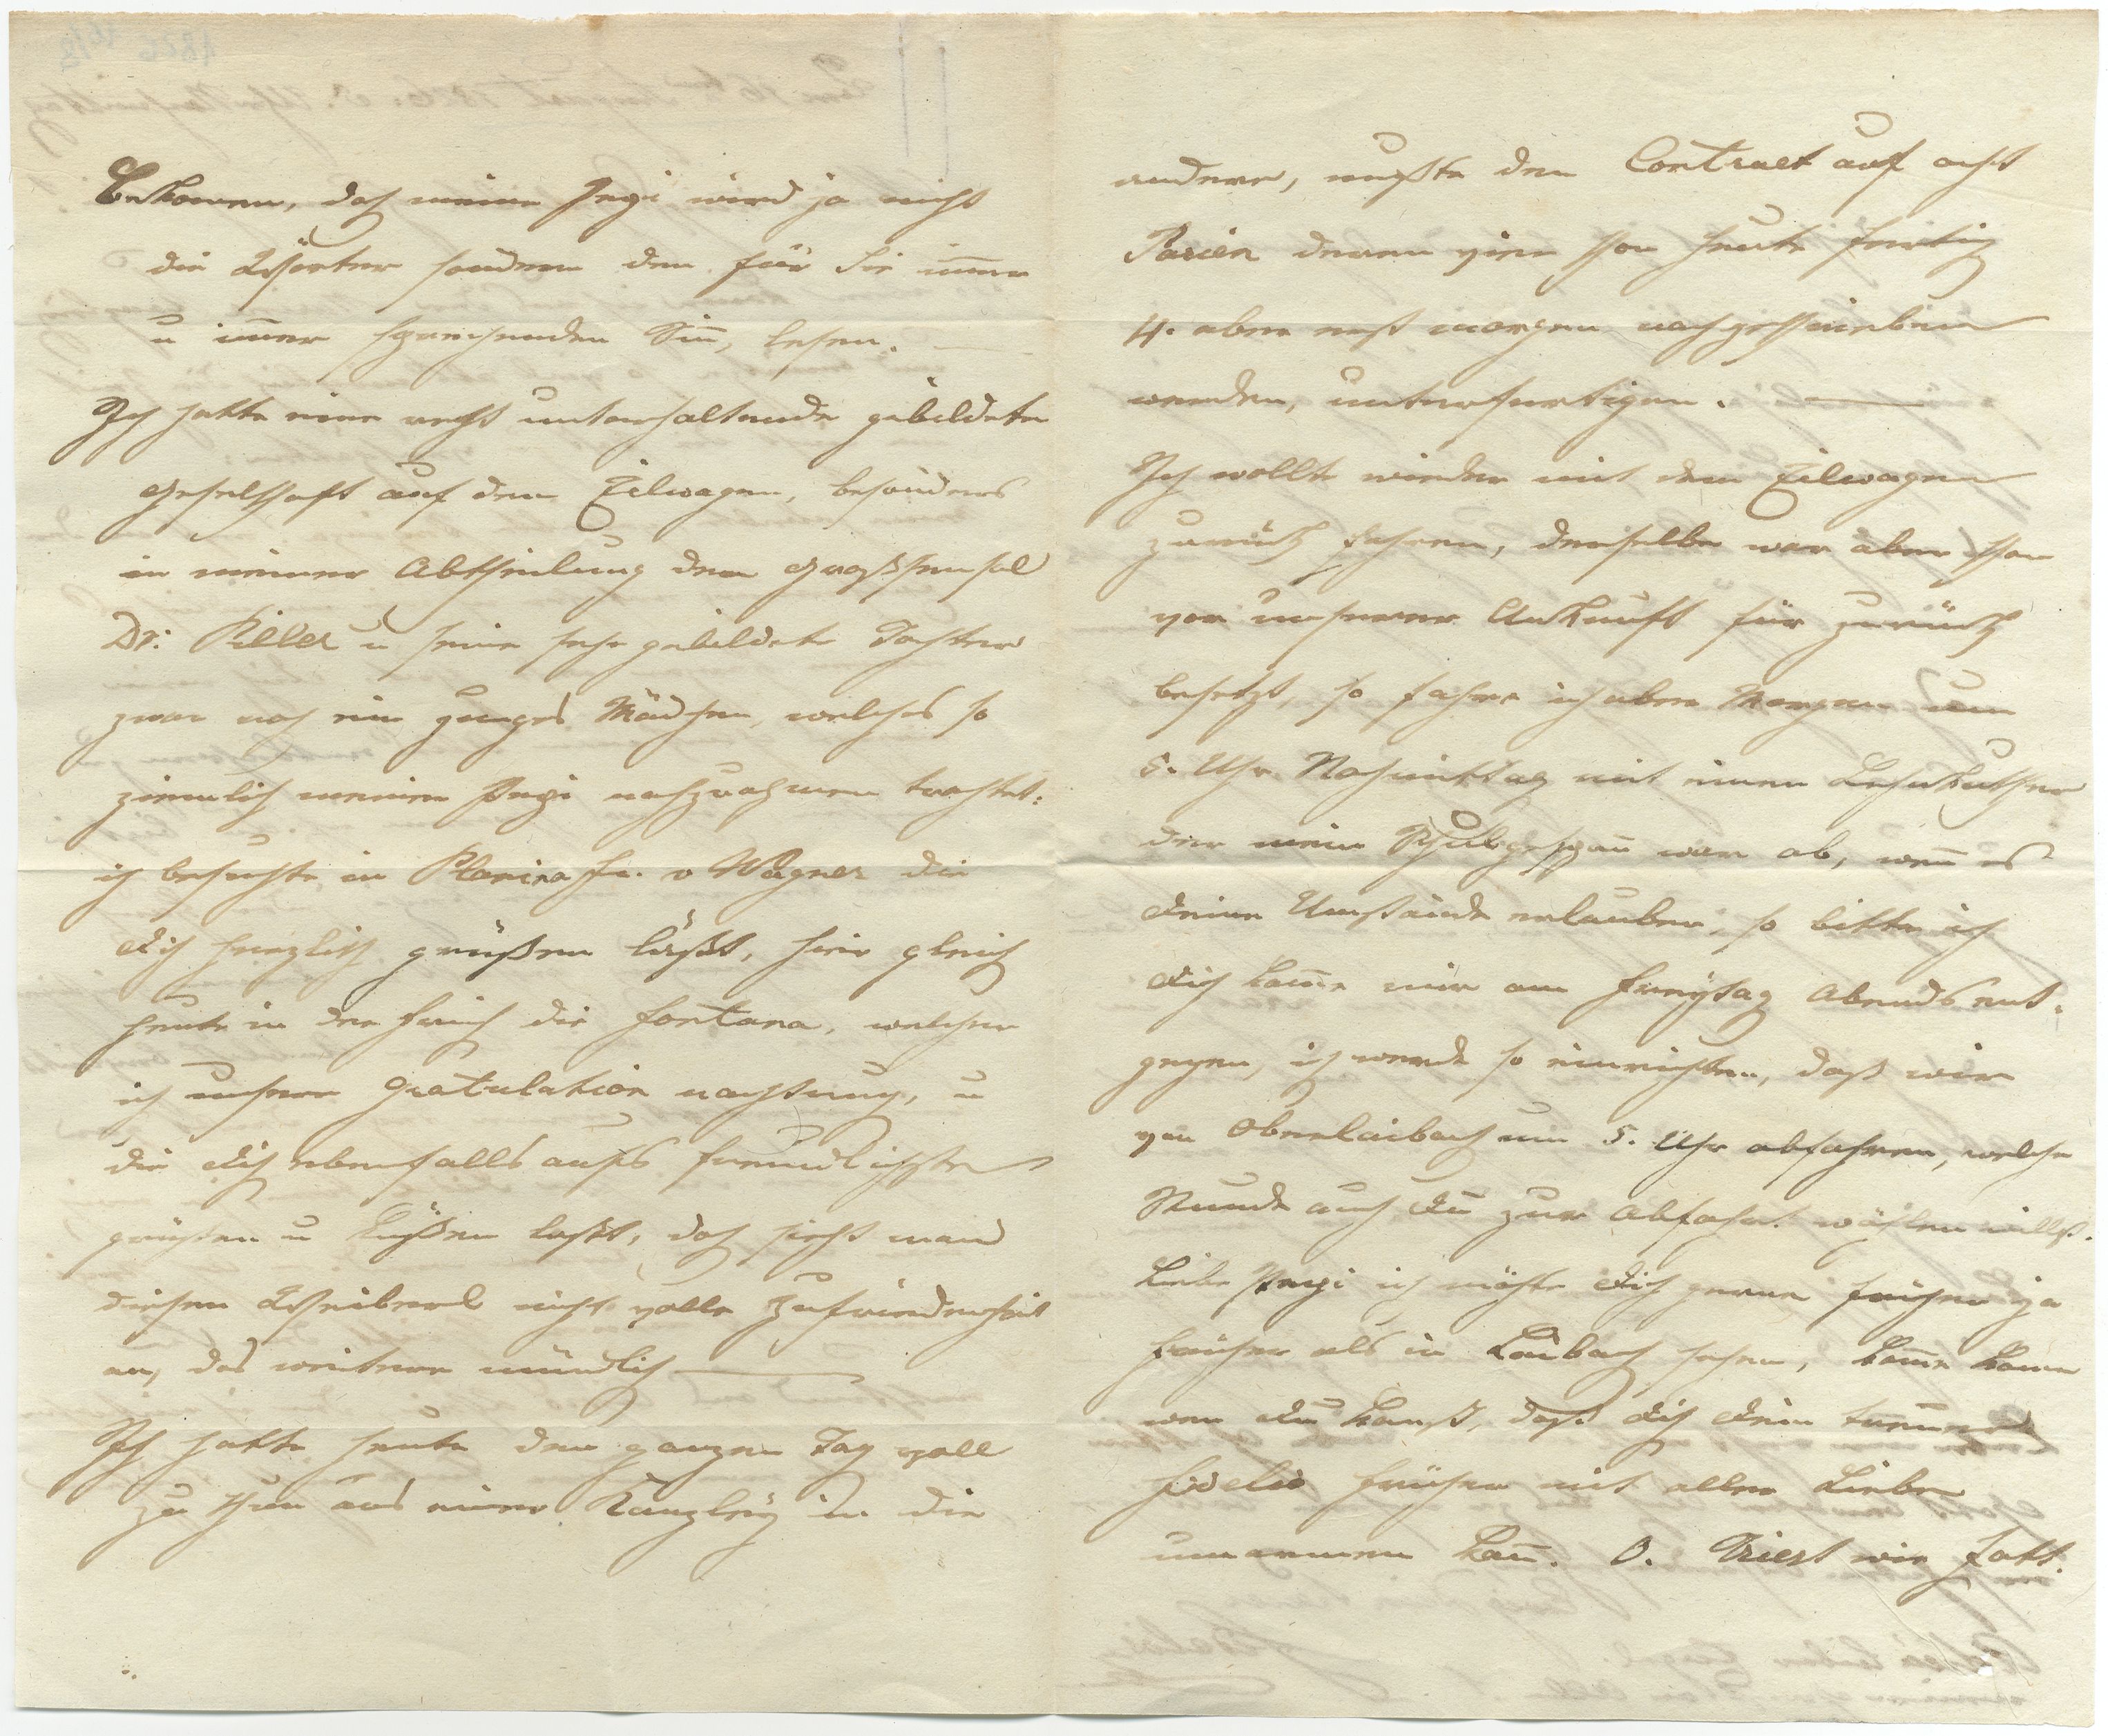 Bekomen, doch meine Pepi wird ja nicht
die Wörter sondern den für Sie imer
u imer sprechenden Sin, lesen. —
Ich hatte eine recht unterhaltende gebildete
Gesellschaft auf dem Eilwagen, besonders
in meiner Abtheilung den Großhensal
Dr: Piller u seine sehr gebildete Tochter
zwar noch ein junges Mädchen, welches so
ziemlich meiner Pepi nachzuahmen trachtet:
ich besuchte in Planina Fr. v Wagner die
dich herzlich grüßen läßt, hier gleich
heute in der Früh die Fontana, welcher
ich unsere Gratulation nachtrug, u
die dich ebenfalls aufs freundlichste
grüßen u küßen laßt, doch sieht man
diesen Weiberl nicht volle Zufriedenheit
an, das weitere mündlich —
Ich hatte heute den ganzen Tag voll
zu thun aus einer Kanzley in die
andere, mußte den Contract auf acht
Parien deren vier schon heute fertig
4. aber erst morgen nachgeschrieben
werden, unterfertigen. —
Ich wollte wieder mit dem Eilwagen
zurück fahren, derselbe war aber schon
vor unserer Ankunft für zurück
besetzt, so fahre ich aber Morgen um
5. Uhr Nachmittag mit einem Lehnkutscher
der mein Schulgespan war ab, wen es
deine Umstände erlauben, so bitte ich
dich kome mir am Freytag Abends ent-
gegen, ich werde so einrichten, daß wir
von Oberlaibach um 5. Uhr abfahren, welche
Stunde auch du zur Abfahrt wählen willst.
Liebe Pepi ich möchte dich gerne früher ja
früher als in Laibach sehen, kome kome
wen du kanst, daß dich dein treuer
Fidelio früher mit aller Liebe
umarmen kan. O. Triest wie hatt.